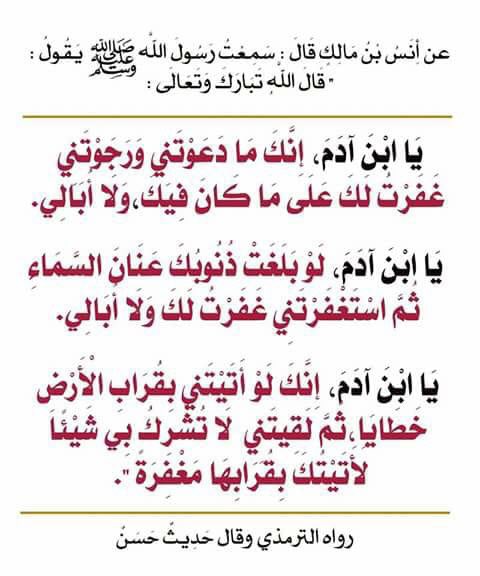 عن أنَسُ بْنُ مَالِكٍ قَالَ : سَمِعْتُ رَسُولَ اللَّهِ ﷺ يَقُولُ :
" قَالَ اللَّهِ تَبَارَكَ وَتَعَالَى :
يَا ابْنَ آدَمَ، إِنَّكَ مَا دَعَوْتَنِي وَرَجَوْتَنِي
غَفَرْتُ لَكَ عَلَى مَا كَانَ فِيكَ،وَلَا أُبَالِي.
يَا ابْنَ آدَمَ، لَوْ بَلَغَتْ ذُنُوبُكَ عَنَانَ السَّمَاءِ
ثُمَّ اسْتَغْفَرْتَنِي غَفَرْتُ لَكَ وَلَا أُبَالِي.
يَا ابْنَ آدَمَ، إِنَّكَ لَوْ أَتَيْتَنِي بِقُرَابِ الْأَرْضِ
خَطَايَا،ثُمَّ لَقِيتَنِي لَا تُشْرِكُ بِي شَيْئًا
لأَتَيْتُكَ بِقُرَابِهَا مَغْفِرَةً ".
رواه الترمذي وقال حَدِيثٌ حَسَنٌ